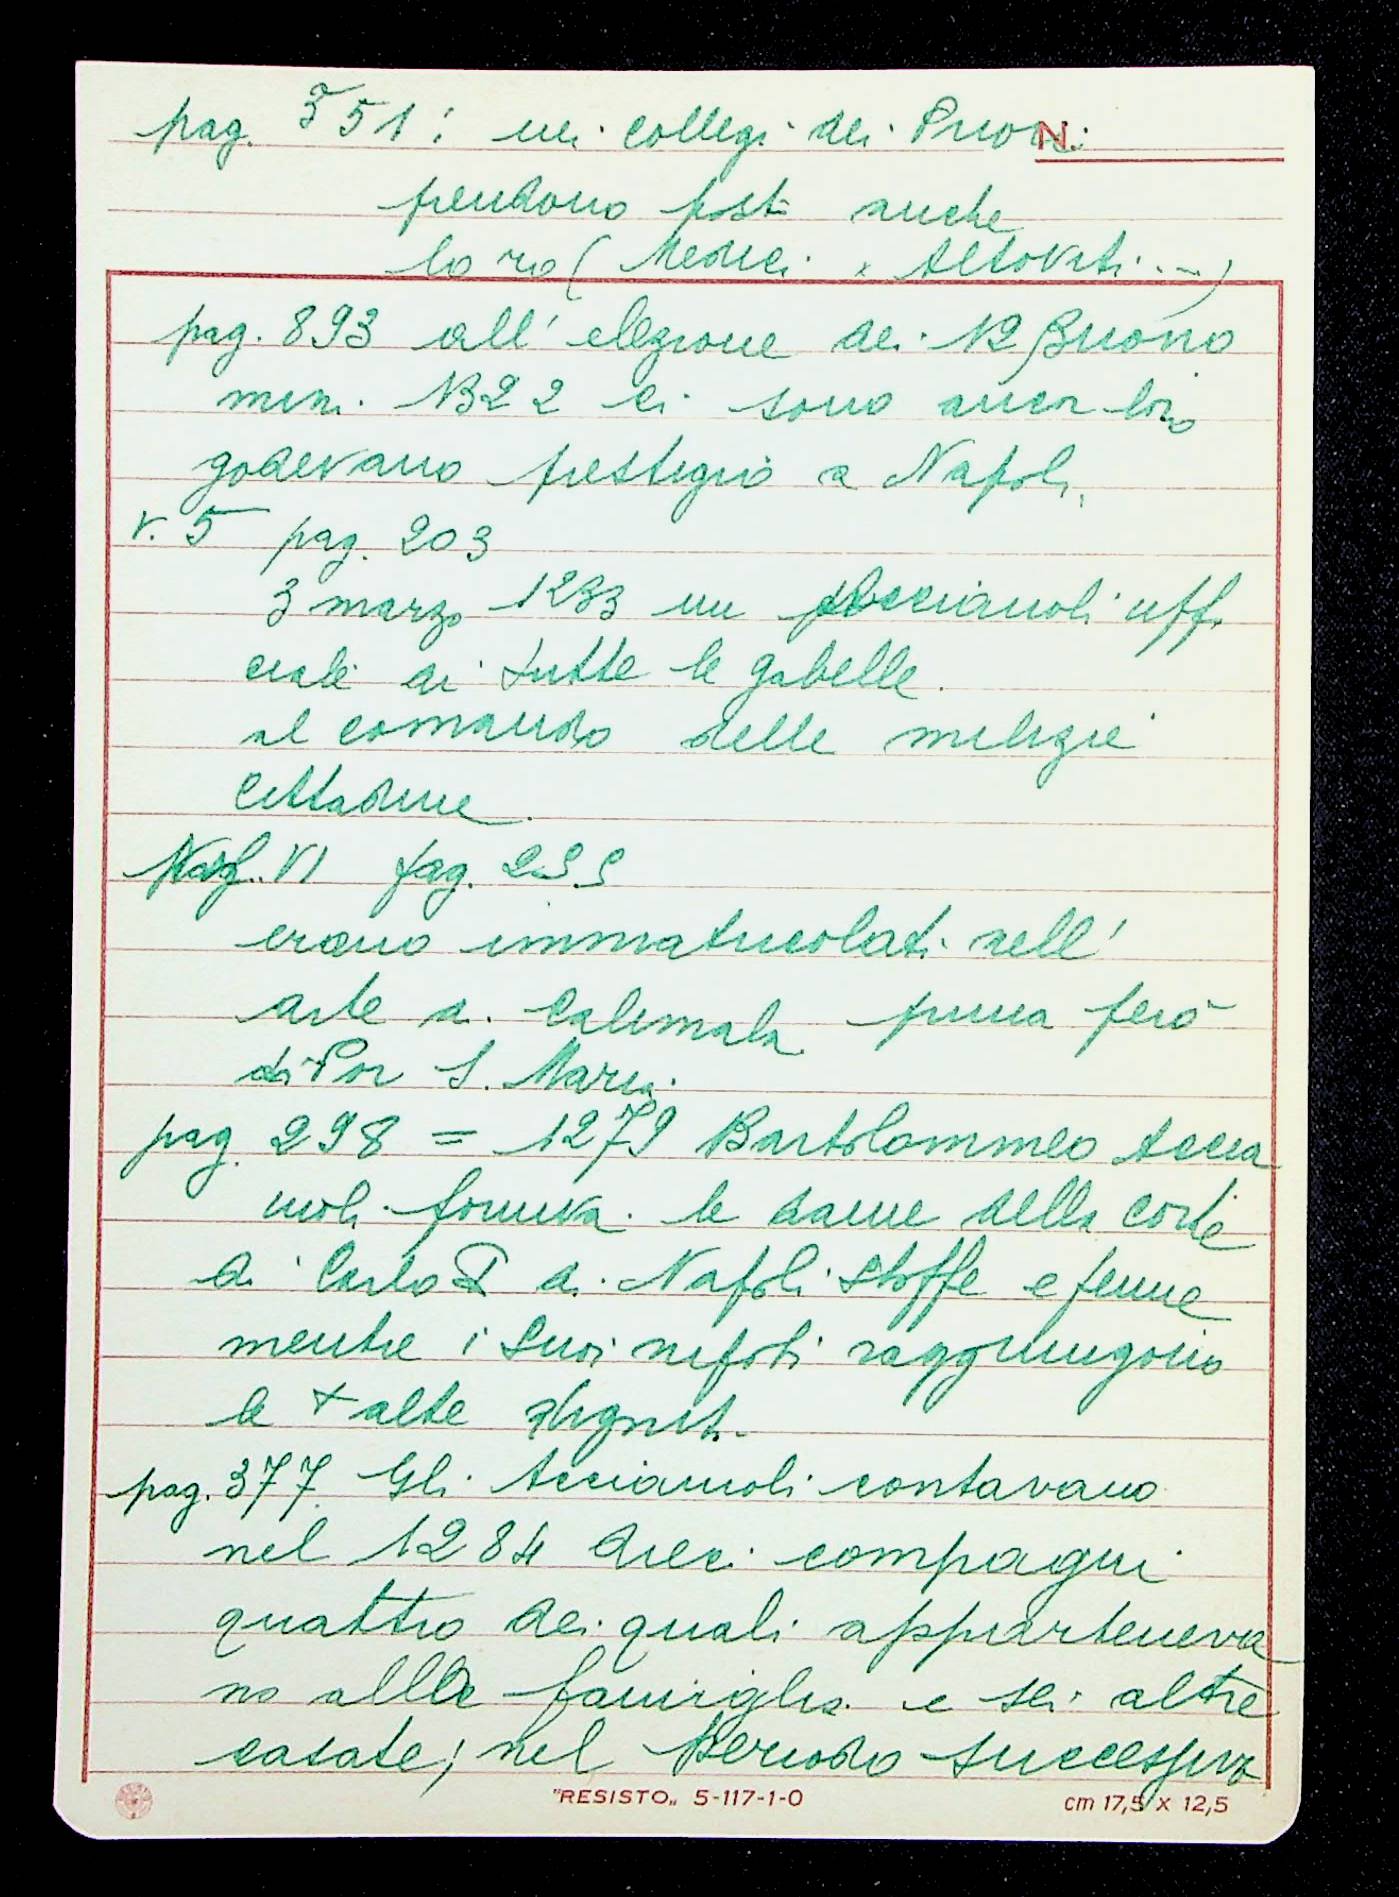 pag. 551: nei collegi dei Priori
N.
prendono posti anche
loro (Medici, Altoviti...)
pag. 893 all' elezione dei 12 Buono
mini 1322 ci sono ancor loro
godevano prestigio a Napoli,
v. 5 pag. 203
3 marzo 1293 un Acciaiuoli uffi
ciale di tutte le gabelle.
al comando delle milizie
cittadine.
VI pag. 255
erano immatricolati nell'
arte di Calimala prima però
di Por S. Maria.
pag. 298 = 1279 Bartolommeo Accia
iuoli forniva le dame della corte
di Carlo I di Napoli stoffe e penne
mentre i suoi nipoti raggiungono
le + alte dignità.
pag. 377 Gli Acciaiuoli contavano
nel 1284 dieci compagni
quattro dei quali apparteneva
no alla famiglia e sei altre
casate; nel periodo successivo
"RESISTO„ 5-117-1-0
cm 17,5 x 12,5